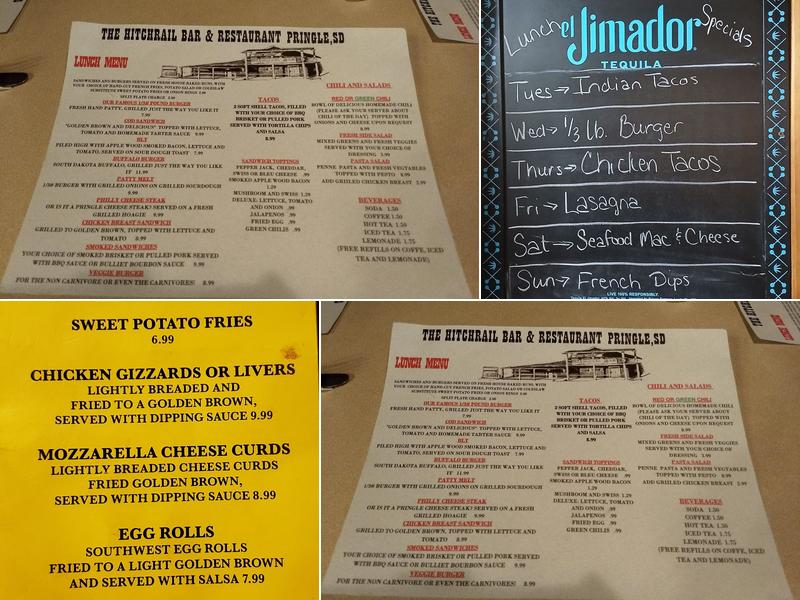 THE HITCHRAIL BAR & RESTAURANT PRINGLE,SD
LUNCH MENU
SANDWICHES AND BURGERS SERVED ON FRESH HOUSE BAKED BUNS, WITH
YOUR CHOICE OF HAND-CUT FRENCH FRIES, POTATO SALAD OR COLESLAW
SUBSTITUTE SWEET POTATO FRIES OR ONION RINGS 2.00
SPLIT PLATE CHARGE 2.00
OUR FAMOUS 1/3LB POUND BURGER
FRESH HAND PATTY, GRILLED JUST THE WAY YOU LIKE IT
7.99
COD SANDWICH
"GOLDEN BROWN AND DELICIOUS" TOPPED WITH LETTUCE,
TOMATO AND HOMEMADE TARTER SAUCE 9.99
BLT
PILED HIGH WITH APPLE SMOKED BACON, LETTUCE AND
TOMATO, SERVED ON SOUR DOUGH TOAST 7.99
BUFFALO BURGER
SOUTH DAKOTA BUFFALO, GRILLED JUST THE WAY YOU LIKE
IT 11.99
PATTY MELT
1/3# BURGER WITH GRILLED ONIONS ON GRILLED SOURDOUGH
9.99
PHILLY CHEESE STEAK
OR IS IT A PRINGLE CHEESE STEAK? SERVED ON A FRESH
GRILLED HOAGIE 9.99
CHICKEN BREAST SANDWICH
GRILLED TO GOLDEN BROWN, TOPPED WITH LETTUCE AND
TOMATO 8.99
SMOKED SANDWICHES
YOUR CHOICE OF SMOKED BRISKET OR PULLED PORK SERVED
WITH BBQ SAUCE OR BULLIET BOURBON SAUCE 9.99
VEGGIE BURGER
FOR THE NON CARNIVORE OR EVEN THE CARNIVORES! 8.99
TACOS
2 SOFT SHELL TACOS, FILLED
WITH YOUR CHOICE OF BBQ
BRISKET OR PULLED PORK
SERVED WITH TORTILLA CHIPS
AND SALSA
8.99
SANDWICH TOPPINGS
PEPPER JACK, CHEDDAR,
SWISS OR BLEU CHEESE .99
SMOKED APPLE WOOD BACON
1.29
MUSHROOM AND SWISS 1.29
DELUXE: LETTUCE, TOMATO
AND ONION .99
JALAPENOS .99
FRIED EGG .99
GREEN CHILIS .99
CHILI AND SALADS
RED OR GREEN CHILI
BOWL OF DELICIOUS HOMEMADE CHILI
(PLEASE ASK YOUR SERVER ABOUT
CHILI OF THE DAY), TOPPED WITH
CHEESE AND ONIONS UPON REQUEST
8.99
FRESH SIDE SALAD
MIXED GREENS AND FRESH VEGGIES
SERVED WITH YOUR CHOICE OF
DRESSING 3.99
PASTA SALAD
PENNE PASTA AND FRESH VEGTABLES
TOPPED WITH PESTO 8.99
ADD GRILLED CHICKEN BREAST 2.99
BEVERAGES
SODA 1.50
COFFEE 1.50
HOT TEA 1.50
ICED TEA 1.75
LEMONADE 1.75
(FREE REFILLS ON COFFE, ICED
TEA AND LEMONADE)
Lunch el Jimador Specials
TEQUILA
Tues → Indian Tacos
Wed → 1/3 lb. Burger
Thurs → Chicken Tacos
Fri → Lasagna
Sat → Seafood Mac & Cheese
Sun → French Dips
LIVE 100% RESPONSIBLY.
SWEET POTATO FRIES
6.99
CHICKEN GIZZARDS OR LIVERS
LIGHTLY BREADED AND
FRIED TO A GOLDEN BROWN,
SERVED WITH DIPPING SAUCE 9.99
MOZZARELLA CHEESE CURDS
LIGHTLY BREADED CHEESE CURDS
FRIED GOLDEN BROWN,
SERVED WITH DIPPING SAUCE 8.99
EGG ROLLS
SOUTHWEST EGG ROLLS
FRIED TO A LIGHT GOLDEN BROWN
AND SERVED WITH SALSA 7.99
THE HITCHRAIL BAR & RESTAURANT PRINGLE,SD
LUNCH MENU
SANDWICHES AND BURGERS SERVED ON FRESH HOUSE BAKED BUNS, WITH
YOUR CHOICE OF HAND-CUT FRENCH FRIES, POTATO SALAD OR COLESLAW
SUBSTITUTE SWEET POTATO FRIES OR ONION RINGS 2.00
SPLIT PLATE CHARGE 2.00
OUR FAMOUS 1/3LB POUND BURGER
FRESH HAND PATTY, GRILLED JUST THE WAY YOU LIKE IT
7.99
COD SANDWICH
"GOLDEN BROWN AND DELICIOUS" TOPPED WITH LETTUCE,
TOMATO AND HOMEMADE TARTER SAUCE 9.99
BLT
PILED HIGH WITH APPLE SMOKED BACON, LETTUCE AND
TOMATO, SERVED ON SOUR DOUGH TOAST 7.99
BUFFALO BURGER
SOUTH DAKOTA BUFFALO, GRILLED JUST THE WAY YOU LIKE
IT 11.99
PATTY MELT
1/3# BURGER WITH GRILLED ONIONS ON GRILLED SOURDOUGH
9.99
PHILLY CHEESE STEAK
OR IS IT A PRINGLE CHEESE STEAK? SERVED ON A FRESH
GRILLED HOAGIE 9.99
CHICKEN BREAST SANDWICH
GRILLED TO GOLDEN BROWN, TOPPED WITH LETTUCE AND
TOMATO 8.99
SMOKED SANDWICHES
YOUR CHOICE OF SMOKED BRISKET OR PULLED PORK SERVED
WITH BBQ SAUCE OR BULLIET BOURBON SAUCE 9.99
VEGGIE BURGER
FOR THE NON CARNIVORE OR EVEN THE CARNIVORES! 8.99
TACOS
2 SOFT SHELL TACOS, FILLED
WITH YOUR CHOICE OF BBQ
BRISKET OR PULLED PORK
SERVED WITH TORTILLA CHIPS
AND SALSA
8.99
SANDWICH TOPPINGS
PEPPER JACK, CHEDDAR,
SWISS OR BLEU CHEESE .99
SMOKED APPLE WOOD BACON
1.29
MUSHROOM AND SWISS 1.29
DELUXE: LETTUCE, TOMATO
AND ONION .99
JALAPENOS .99
FRIED EGG .99
GREEN CHILIS .99
CHILI AND SALADS
RED OR GREEN CHILI
BOWL OF DELICIOUS HOMEMADE CHILI
(PLEASE ASK YOUR SERVER ABOUT
CHILI OF THE DAY), TOPPED WITH
CHEESE AND ONIONS UPON REQUEST
8.99
FRESH SIDE SALAD
MIXED GREENS AND FRESH VEGGIES
SERVED WITH YOUR CHOICE OF
DRESSING 3.99
PASTA SALAD
PENNE PASTA AND FRESH VEGTABLES
TOPPED WITH PESTO 8.99
ADD GRILLED CHICKEN BREAST 2.99
BEVERAGES
SODA 1.50
COFFEE 1.50
HOT TEA 1.50
ICED TEA 1.75
LEMONADE 1.75
(FREE REFILLS ON COFFE, ICED
TEA AND LEMONADE)